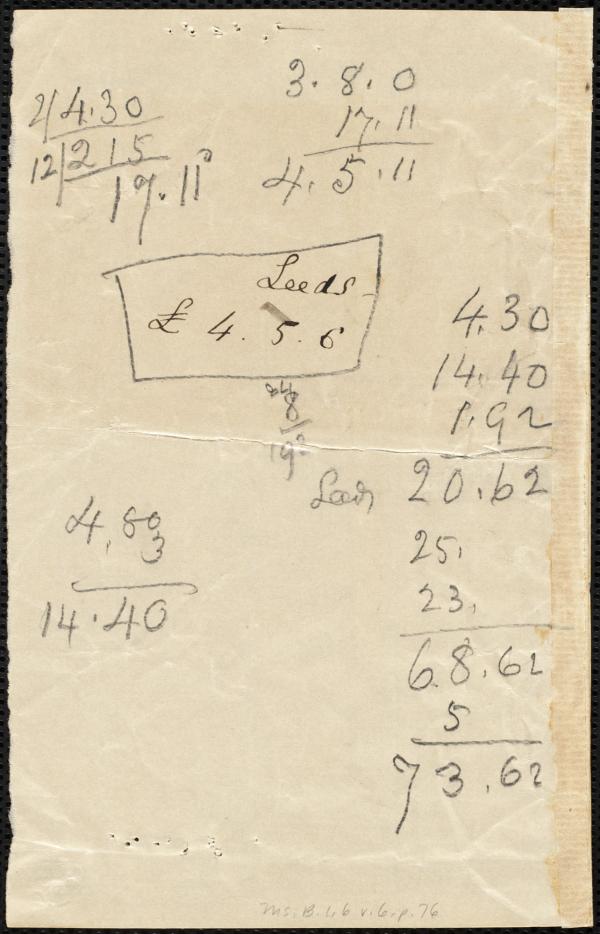 2/4.30
12/215
17.11
3.8.0
17.11
4.5.11
Leeds
£ 4.5.6
24
8
192
4.80
3
14.40
4.30
14.40
1.92
20.62
25.
23.
68.62
5
73.62
Ms. B. 1.6 v.6, p. 76